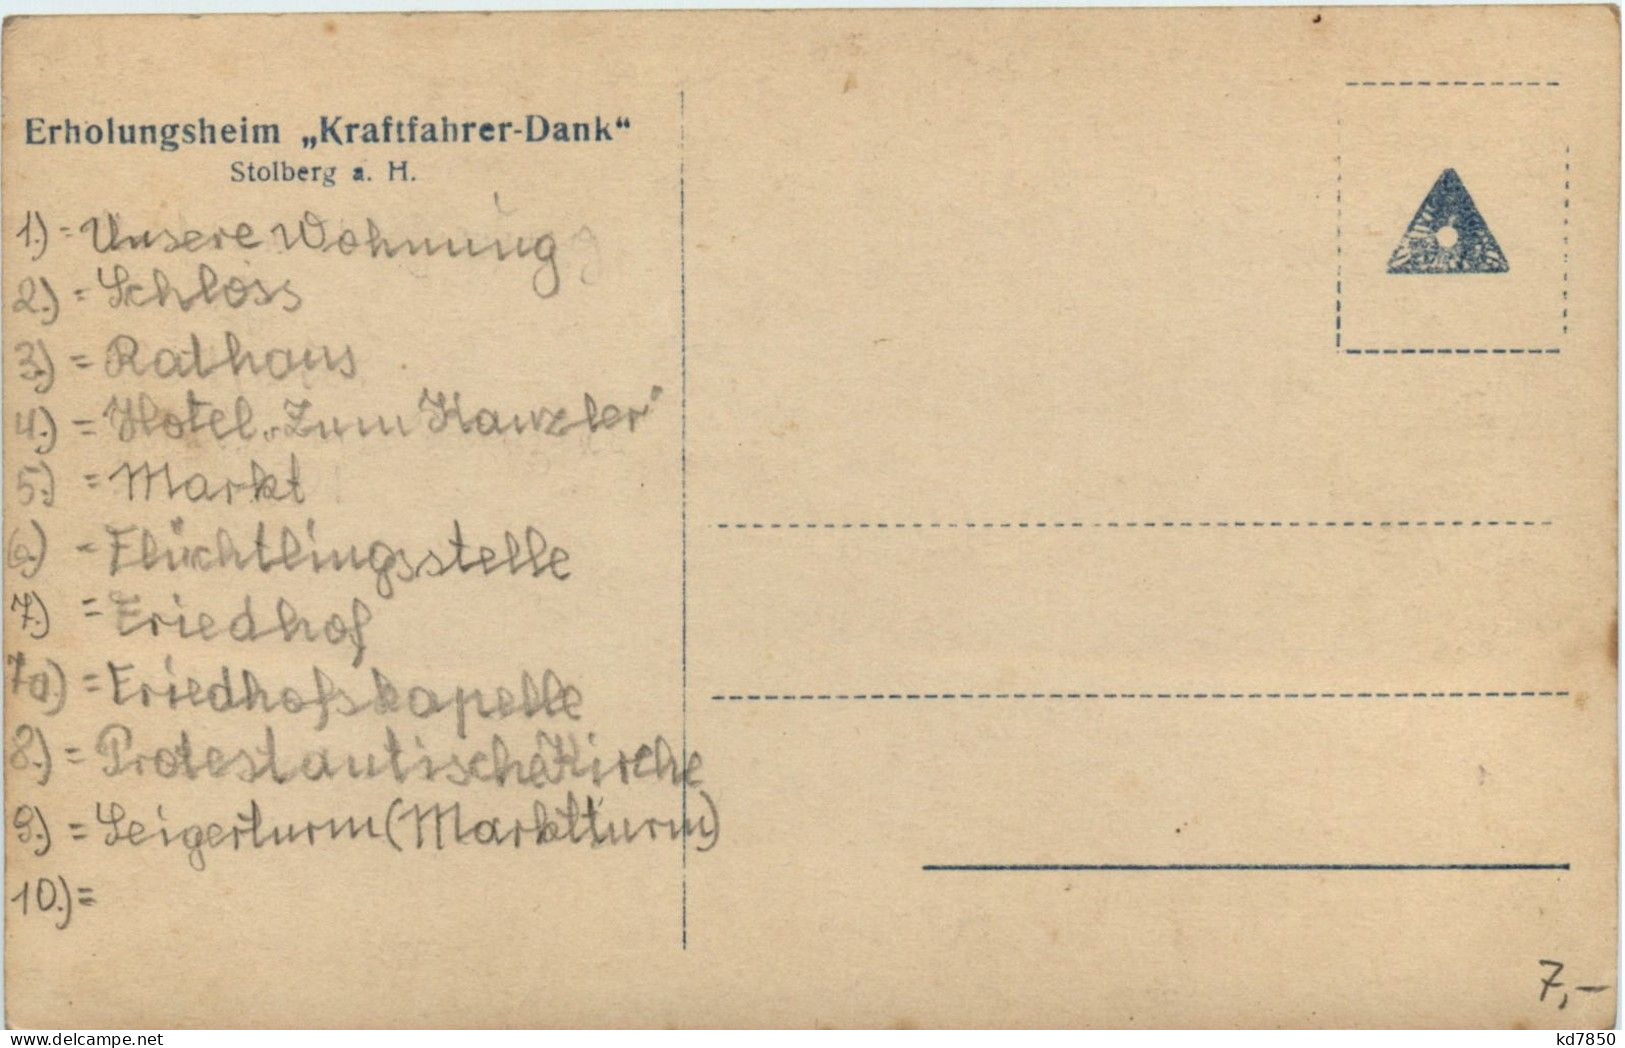 Erholungsheim „Kraftfahrer-Dank“
Stolberg a. H.
1.) = Unsere Wohnung
2.) = Schloss
3.) = Rathaus
4.) = Hotel „Zum Kanzler“
5.) = Markt
6.) = Flüchtlingsstelle
7.) = Friedhof
7a.) = Friedhofskapelle
8.) = Protestantische Kirche
9.) = Seigerturm (Marktturm)
10.) =
7,-
kd7850